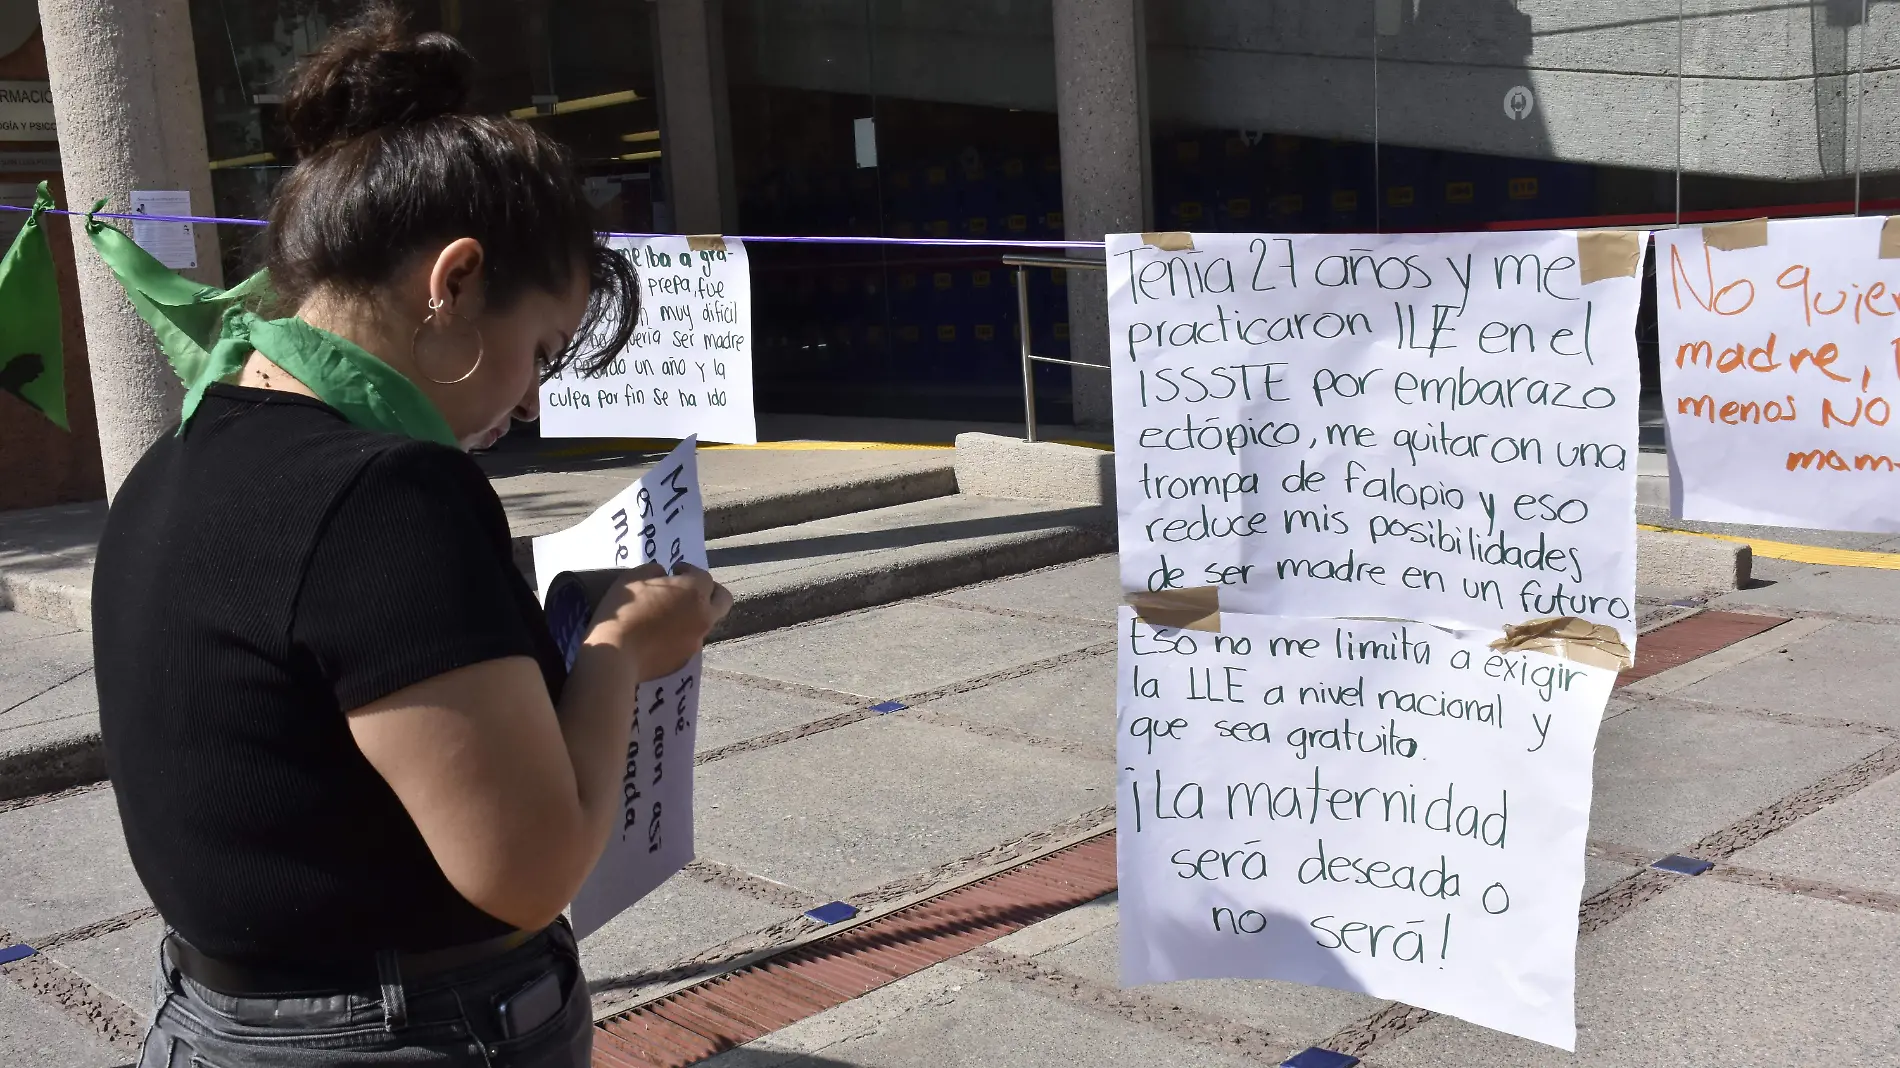 RMACIÓ
OGÍA Y PSICO
me iba a gra-
prepa, fue
muy difícil
quería ser madre
un año y la
culpa por fin se ha ido
Mi
espo
me
fué
y aon así
Tenía 27 años y me
practicaron ILE en el
ISSSTE por embarazo
ectópico, me quitaron una
trompa de falopio y eso
reduce mis posibilidades
de ser madre en un futuro.
Eso no me limita a exigir
la ILE a nivel nacional y
que sea gratuito.
¡La maternidad
será deseada o
no será!
No quie
madre,
menos NO
mam